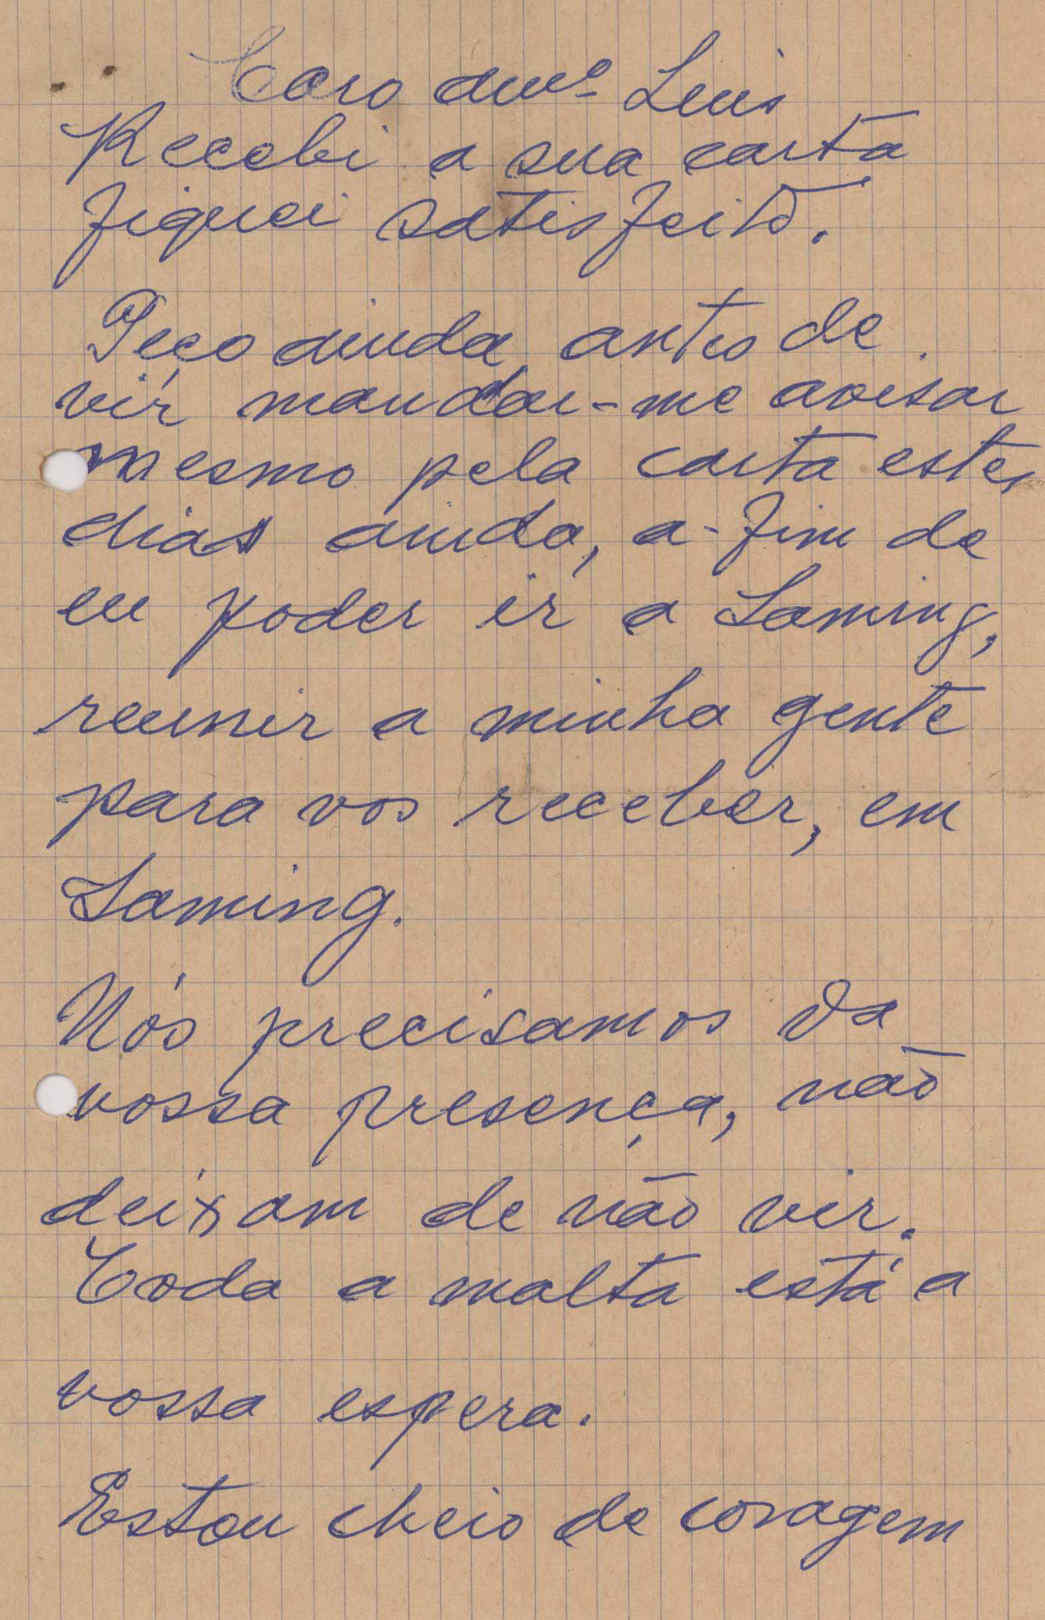 Caro amº Luis
Recebi a sua carta
fiquei satisfeito.
Peço ainda antes de
vir mandar-me avisar
mesmo pela carta estes
dias ainda, a-fim de
eu poder ir a Laming,
reunir a minha gente
para vos receber, em
Laming.
Nós precisamos da
vossa presença, não
deixam de não vir.
Toda a malta está a
vossa espera.
Estou cheio de coragem